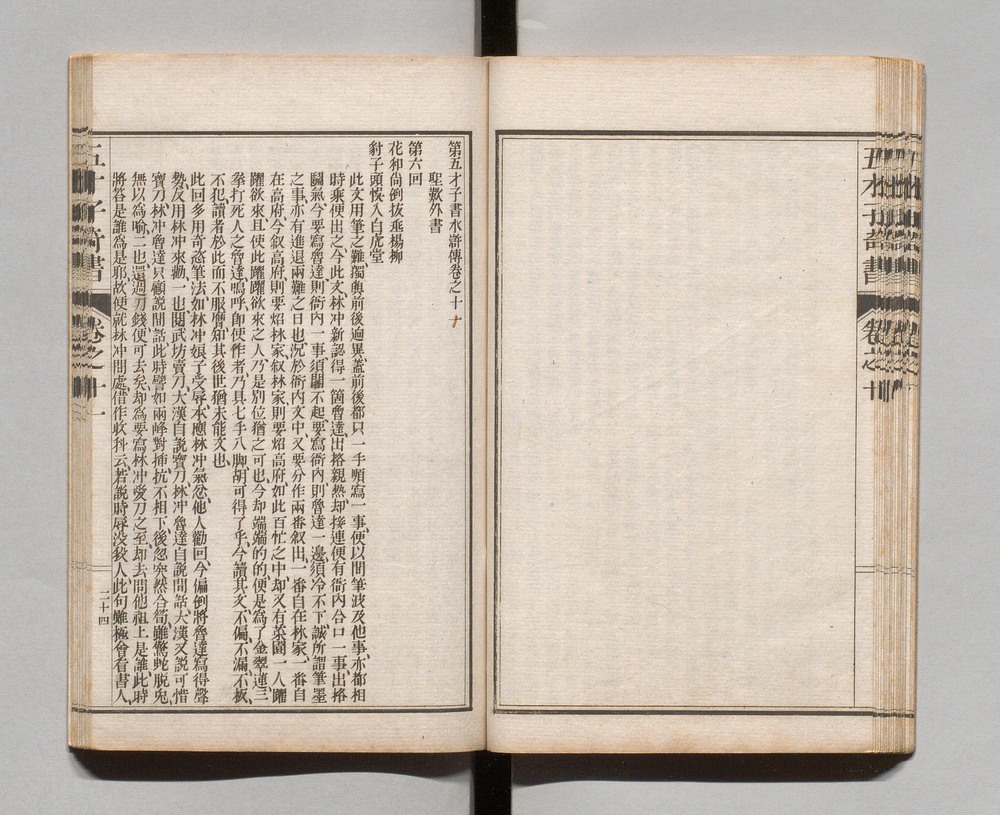 五才子奇書
卷之十
第五才子書水滸傳卷之十十
聖歎外書
第六回
花和尚倒拔垂楊柳
豹子頭悞入白虎堂
此文用筆之難獨與前後迥異蓋前後都只一手順寫一事便以閒筆波及他事亦都相
時乘便出之今此文林冲新認得一箇魯達出格親熱却接連便有衙內合口一事出格
鬭氣今要寫魯達則衙內一事須閣不起要寫衙內則魯達一邊須冷不下誠所謂筆墨
之事亦有進退兩難之日也況於衙內文中又要分作兩番叙出一番自在林家一番自
在高府今叙高府則要炤林家叙林家則要炤高府如此百忙之中却又有菜園一人躍
躍欲來且使此躍躍欲來之人乃是別位猶之可也今却端端的的便是爲了金翠蓮三
拳打死人之魯達嗚呼卽使作者乃具七手八脚胡可得了乎今讀其文不偏不漏不板
不犯讀者於此而不服膺知其後世猶未能文也
此回多用奇恣筆法如林冲娘子受辱本應林冲氣忿他人勸回今偏倒將魯達寫得聲
勢反用林冲來勸一也閱武坊賣刀大漢自說寶刀林冲魯達自說閒話大漢又說可惜
寶刀林冲魯達只顧說閒話此時譬如兩峰對插抗不相下後忽突然合筍雖驚蛇脫兔
無以爲喻二也還過刀錢便可去矣却爲要寫林冲愛刀之至却去問他祖上是誰此時
將答是誰爲是耶故便就林冲問處借作收科云若說時辱沒殺人此句雖極會看書人
五才子奇書
卷之十一
二十四